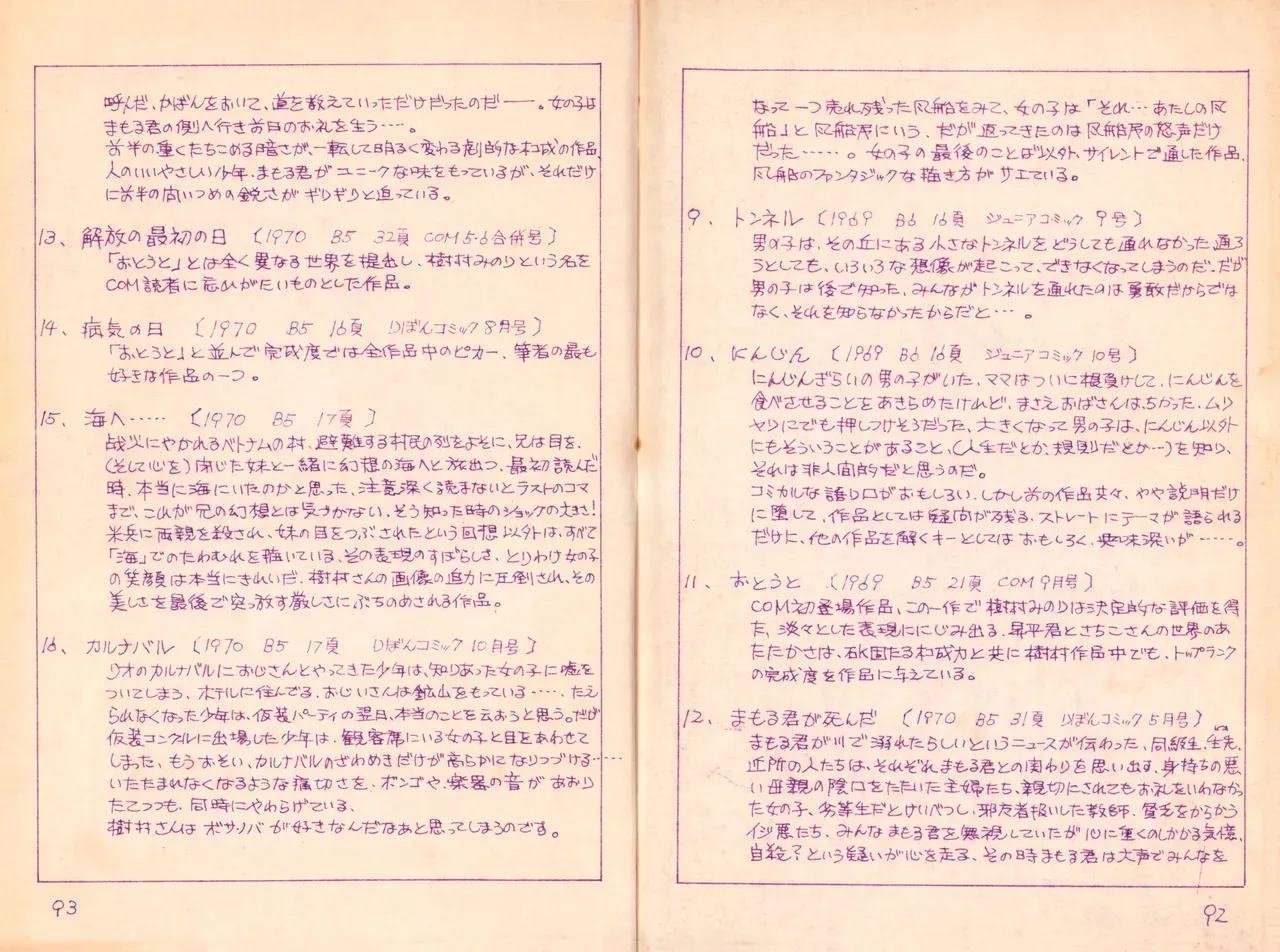 なって一つ売れ残った風船をみて、女の子は「それ…あたしの風
船」と風船屋にいう、だが返ってきたのは風船屋の怒声だけ
だった……。女の子の最後のことば以外、サイレントで通した作品、
風船のファンタジックな描き方がサエている。
9、トンネル (1969 B6 16頁 ジュニアコミック 9号)
男の子は、その丘にある小さなトンネルをどうしても通れなかった、通ろ
うとしても、いろいろな想像が起こって、できなくなってしまうのだ、だが
男の子は後で知った、みんながトンネルを通れたのは勇敢だからでは
なく、それを知らなかったからだと…。
10、にんじん (1969 B6 16頁 ジュニアコミック 10号)
にんじんぎらいの男の子がいた、ママはついに根負けして、にんじんを
食べさせることをあきらめたけれど、まさえおばさんはちがった、ムリ
ヤリにでも押しつけそうだった、大きくなって男の子は、にんじん以外
にもそういうことがあること、(人生だとか、規則だとか…)を知り、
それは非人間的だと思うのだ。
コミカルな語り口がおもしろい、しかし前の作品共々、やや説明だけ
に堕して、作品としては疑問が残る、ストレートにテーマが語られる
だけに、他の作品を解くキーとしてはおもしろく、興味深いが……。
11、おとうと (1969 B5 21頁 COM 9月号)
COM初登場作品、この一作で樹村みのりは決定的な評価を得
た、淡々とした表現ににじみ出る、昇平君とさちこさんの世界のあ
たたかさは、確固たる構成力と共に樹村作品中でも、トップランク
の完成度を作品に与えている。
12、まもる君が死んだ (1970 B5 31頁 りぼんコミック 5月号)
まもる君が川で溺れたらしいというニュースが伝わった、同級生、先生、
近所の人たちは、それぞれまもる君との関わりを思い出す、身持ちの悪
い母親の陰口をたたいた主婦たち、親切にされてもお礼をいわなかっ
た女の子、劣等生だとけいべつし、邪魔者扱いした教師、貧乏をからかう
イジ悪たち、みんなまもる君を無視していたが心に重くのしかかる気憶、
自殺？という疑いが心を走る、その時まもる君は大声でみんなを
92
呼んだ、かばんをおいて、道を教えていっただけだったのだ――。女の子は
まもる君の側へ行き前日のお礼を言う…。
前半の重くたちこめる暗さが、一転して明るく変わる劇的な構成の作品、
人のいいやさしい少年、まもる君がユニークな味をもっているが、それだけ
に前半の問いつめの鋭さがギリギリと迫っている。
13、解放の最初の日 (1970 B5 32頁 COM 5・6合併号)
「おとうと」とは全く異なる世界を提出し、樹村みのりという名を
COM読者に忘れがたいものとした作品。
14、病気の日 (1970 B5 16頁 りぼんコミック 8月号)
「おとうと」と並んで完成度では全作品中のピカ一、筆者の最も
好きな作品の一つ。
15、海へ…… (1970 B5 17頁)
戦火にやかれるベトナムの村、避難する村民の列をよそに、兄は目を、
(そして心を)閉じた妹と一緒に幻想の海へと旅出つ、最初読んだ
時、本当に海にいたのかと思った、注意深く読まないとラストのコマ
まで、これが兄の幻想とは気づかない、そう知った時のショックの大きさ！
米兵に両親を殺され、妹の目をつぶされたという回想以外は、すべて
「海」でのたわむれを描いている、その表現のすばらしさ、とりわけ女の子
の笑顔は本当にきれいだ、樹村さんの画像の迫力に圧倒され、その
美しさを最後で突っ放す厳しさにぶちのめされる作品。
16、カルナバル (1970 B5 17頁 りぼんコミック 10月号)
リオのカルナバルにおじさんとやってきた少年は、知りあった女の子に嘘を
ついてしまう、ホテルに住んでる、おじいさんは鉱山をもっている……、たえ
られなくなった少年は、仮装パーティの翌日、本当のことを云おうと思う。だが
仮装コンクルに出場した少年は、観客席にいる女の子と目をあわせて
しまった、もうおそい、カルナバルのざわめきだけが高らかになりつづける……
いたたまれなくなるような痛切さを、ボンゴや、楽器の音があおり
たてつつも、同時にやわらげている、
樹村さんはボサノバが好きなんだなあと思ってしまうのです。
93